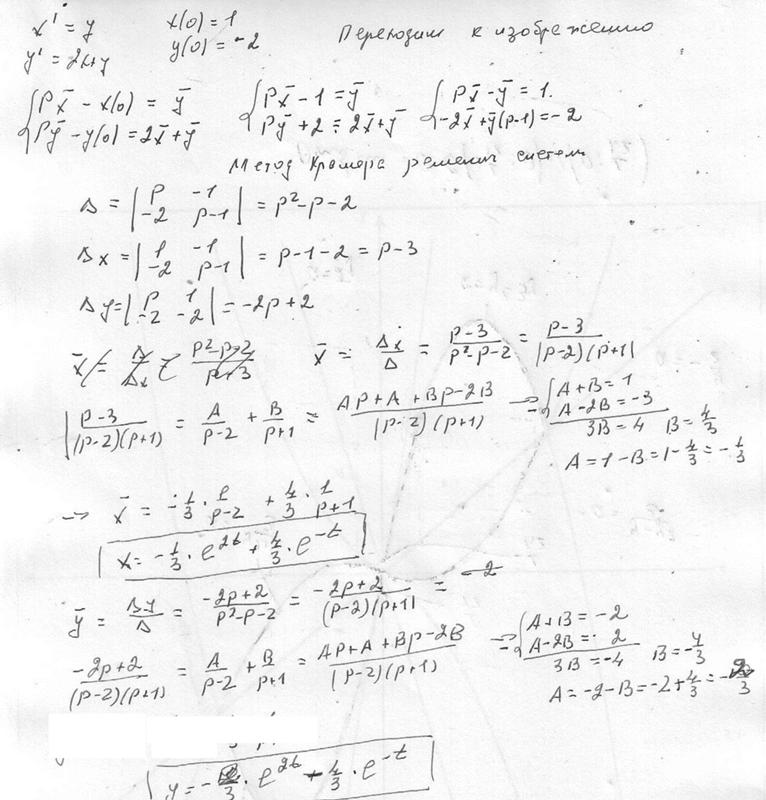 x' = y x(0) = 1 Переходим к изображению
y' = 2x+y y(0) = -2
{ px̄ - x(0) = ȳ { px̄ - 1 = ȳ { px̄ - ȳ = 1.
pȳ - y(0) = 2x̄ + ȳ pȳ + 2 = 2x̄ + ȳ -2x̄ + ȳ(p-1) = -2
Метод Крамера решения систем
Δ = | p -1 ; -2 p-1 | = p² - p - 2
Δx = | 1 -1 ; -2 p-1 | = p - 1 - 2 = p - 3
Δy = | p 1 ; -2 -2 | = -2p + 2
x̄ = Δx/Δ = (p-3)/(p²-p-2) = (p-3)/((p-2)(p+1))
(p-3)/((p-2)(p+1)) = A/(p-2) + B/(p+1) = (Ap+A+Bp-2B)/((p-2)(p+1)) → - { A+B = 1
A-2B = -3
3B = 4 B = 4/3
A = 1-B = 1 - 4/3 = -1/3
→ x̄ = -1/3 · 1/(p-2) + 4/3 · 1/(p+1)
x = -1/3 · e^2t + 4/3 · e^-t
ȳ = Δy/Δ = (-2p+2)/(p²-p-2) = (-2p+2)/((p-2)(p+1)) = -2
(-2p+2)/((p-2)(p+1)) = A/(p-2) + B/(p+1) = (Ap+A+Bp-2B)/((p-2)(p+1)) → - { A+B = -2
A-2B = 2
3B = -4 B = -4/3
A = -2-B = -2 + 4/3 = -2/3
y = - /3 · e^2t - 4/3 · e^-t